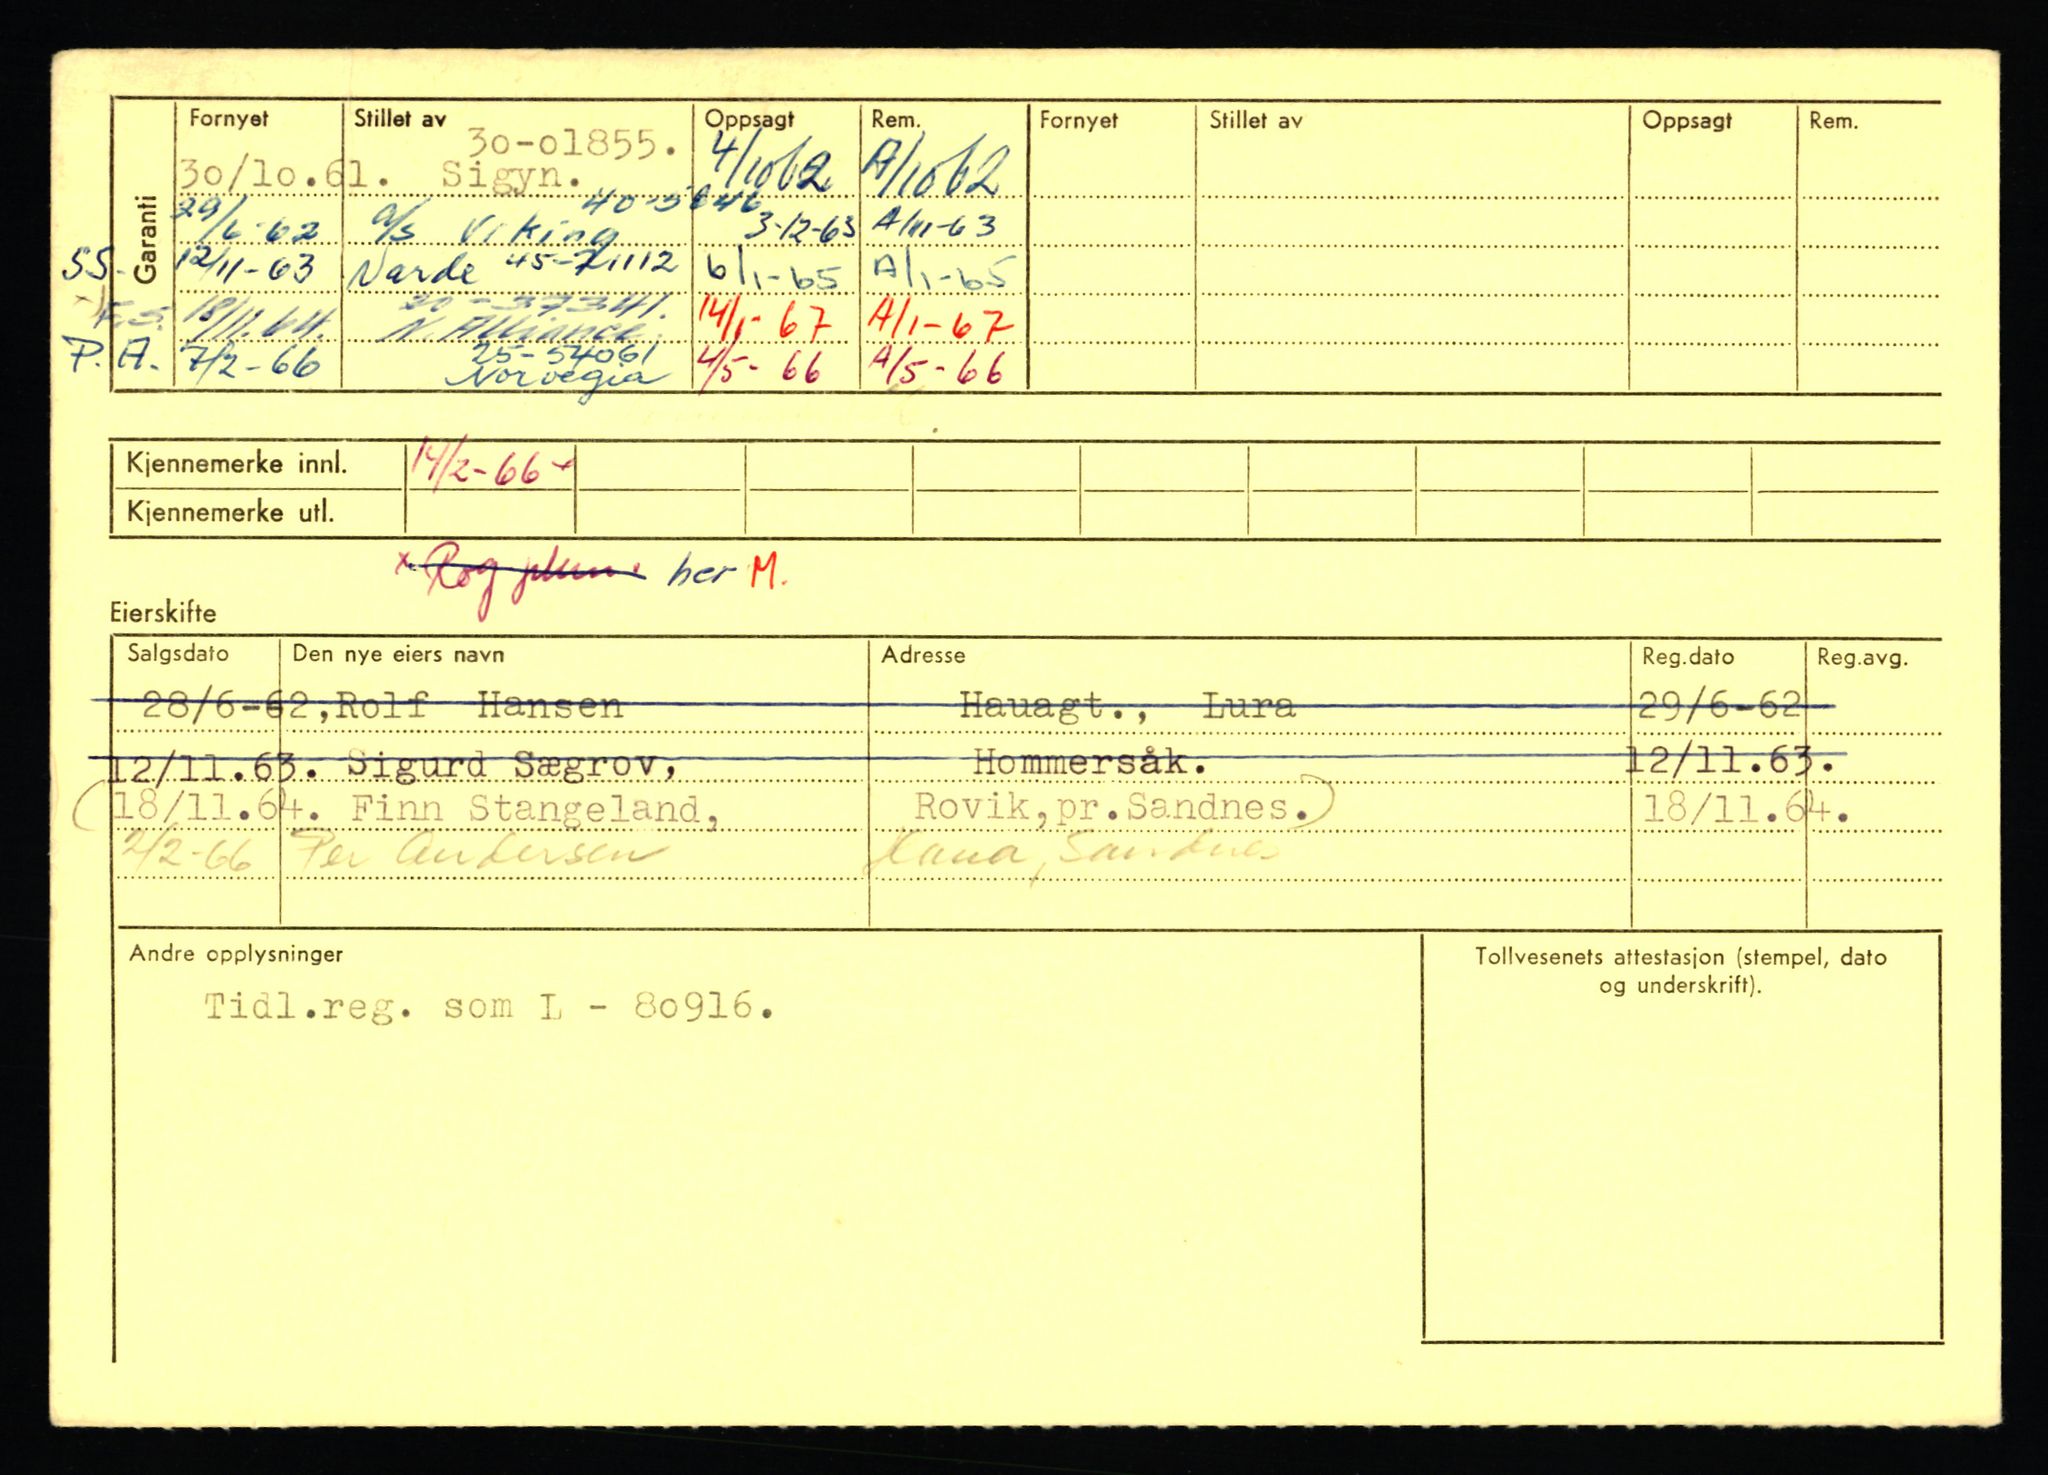 Garanti
Fornyet Stillet av Oppsagt Rem. Fornyet Stillet av Oppsagt Rem.
30-01855.
30/10.61. Sigyn. 4/10 62 A/10 62
29/6-62 a/s Viking 3-12-63 A/11-63
SS- 12/11-63 Narde 45-71112 6/1-65 A/1-65
20-37341.
F.S. 18/11.64. N. Alliance. 14/1-67 A/1-67
25-54061
P.A. 7/2-66 Norvegia 4/5-66 A/5-66
Kjennemerke innl. 14/2-66
Kjennemerke utl.
x Rog her M.
Eierskifte
Salgsdato Den nye eiers navn Adresse Reg.dato Reg.avg.
28/6-62, Rolf Hansen Hauagt., Lura 29/6-62
12/11.63. Sigurd Sægrov, Hommersåk. 12/11.63.
(18/11.64. Finn Stangeland, Rovik, pr. Sandnes.) 18/11.64.
2/2-66 Per Andersen Hana, Sandnes
Andre opplysninger
Tidl.reg. som L - 80916.
Tollvesenets attestasjon (stempel, dato
og underskrift).